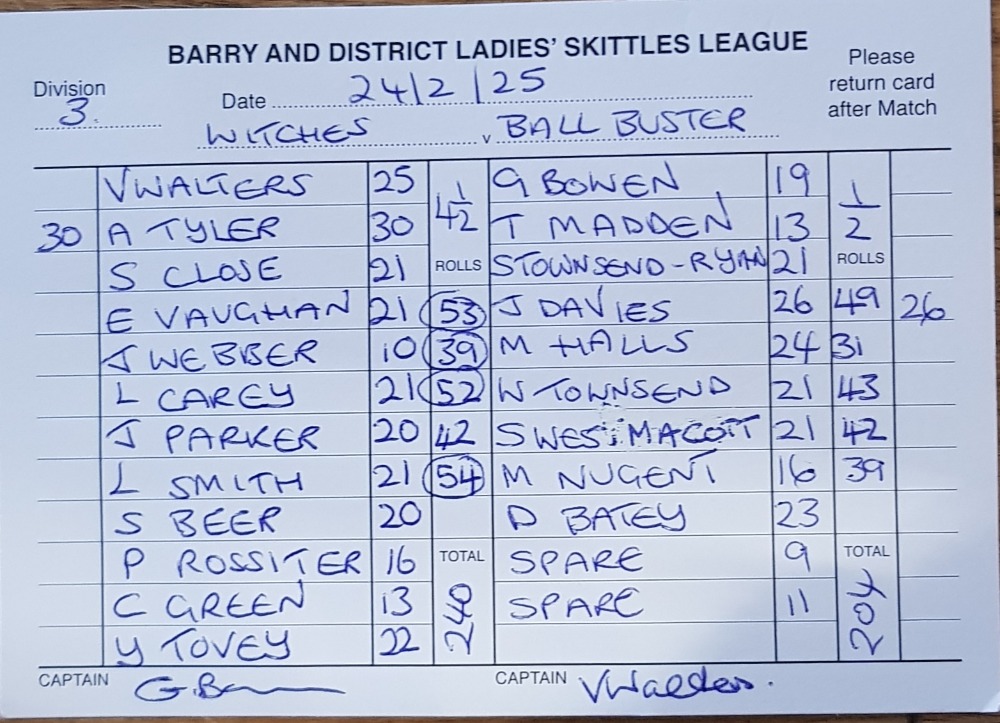 BARRY AND DISTRICT LADIES' SKITTLES LEAGUE
Please return card after Match
Division 3.
Date 24/2/25
WITCHES v BALL BUSTER
V WALTERS 25 4 1/2 G BOWEN 19 1/2
30 A TYLER 30 T MADDEN 13
S CLOSE 21 ROLLS S TOWNSEND-RYAN 21 ROLLS
E VAUGHAN 21 53 J DAVIES 26 49 26
J WEBBER 10 39 M HALLS 24 31
L CAREY 21 52 W TOWNSEND 21 43
J PARKER 20 42 S WESTMACOTT 21 42
L SMITH 21 54 M NUGENT 16 39
S BEER 20 D BATEY 23
P ROSSITER 16 TOTAL SPARE 9 TOTAL
C GREEN 13 240 SPARE 11 204
Y TOVEY 22
CAPTAIN CAPTAIN VWalters.